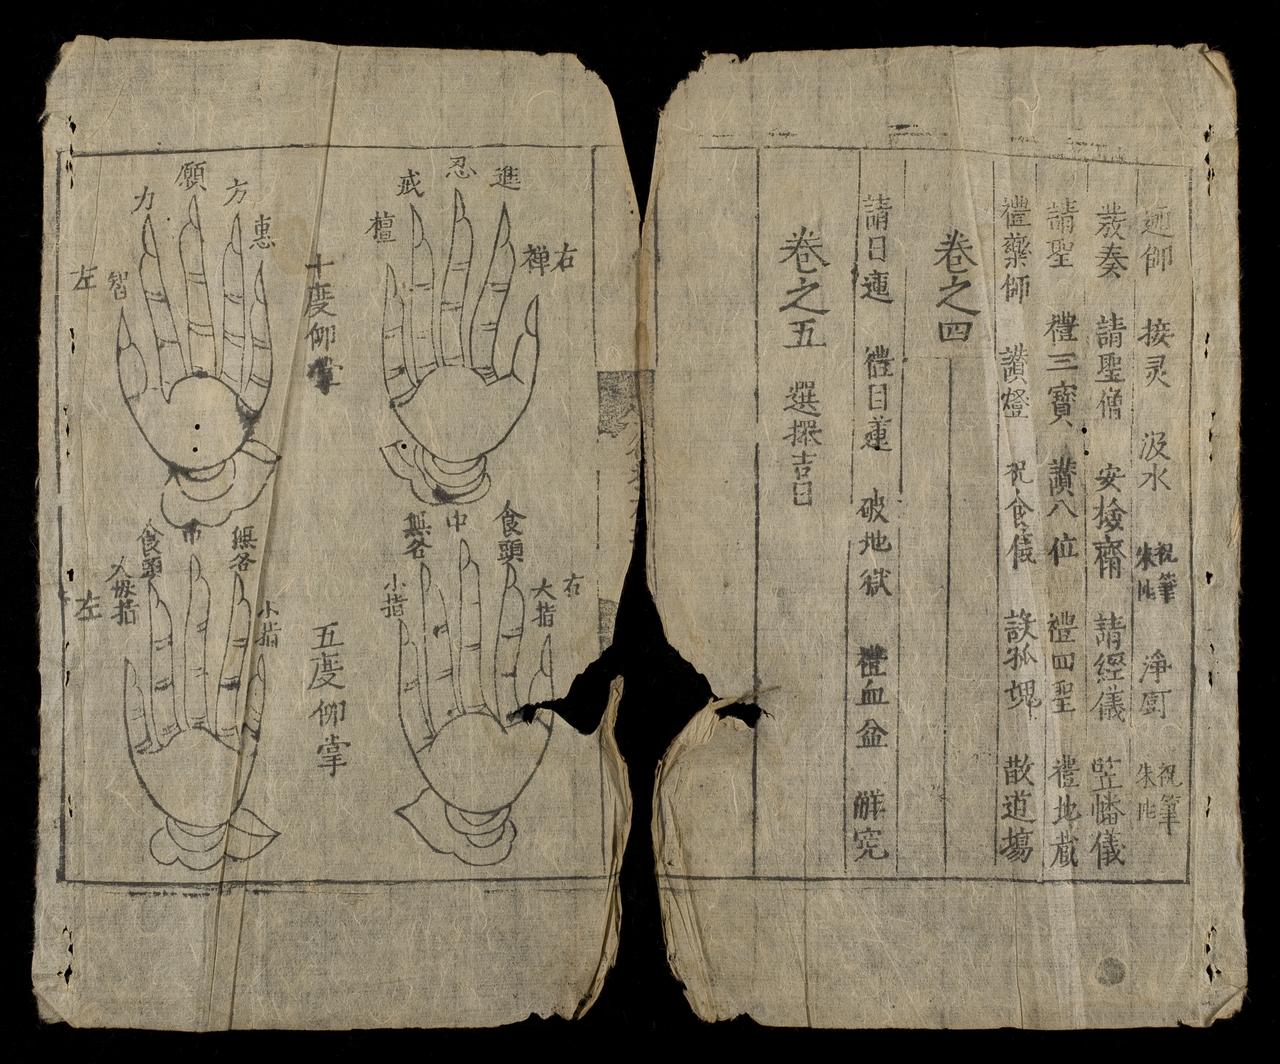 迎師 接灵 汲水 祝筆 朱砂 淨厨 祝筆 朱砂
發奏 請聖僧 安撿齋 請經儀 竪幡儀
請聖 禮三寶 讃八位 禮四聖 禮地藏
禮藥師 讃燈 祝食儀 設孤魂 散道塲
卷之四
請目連 禮目蓮 破地獄 禮血盆 觧寃
卷之五 選擇吉日
右
禅 進 忍 戒 檀
十度仰掌
惠 方 願 力 智
左
右
大指 食頭 中 無名 小指
五度仰掌
小指 無名 中 食頭 大母指
左